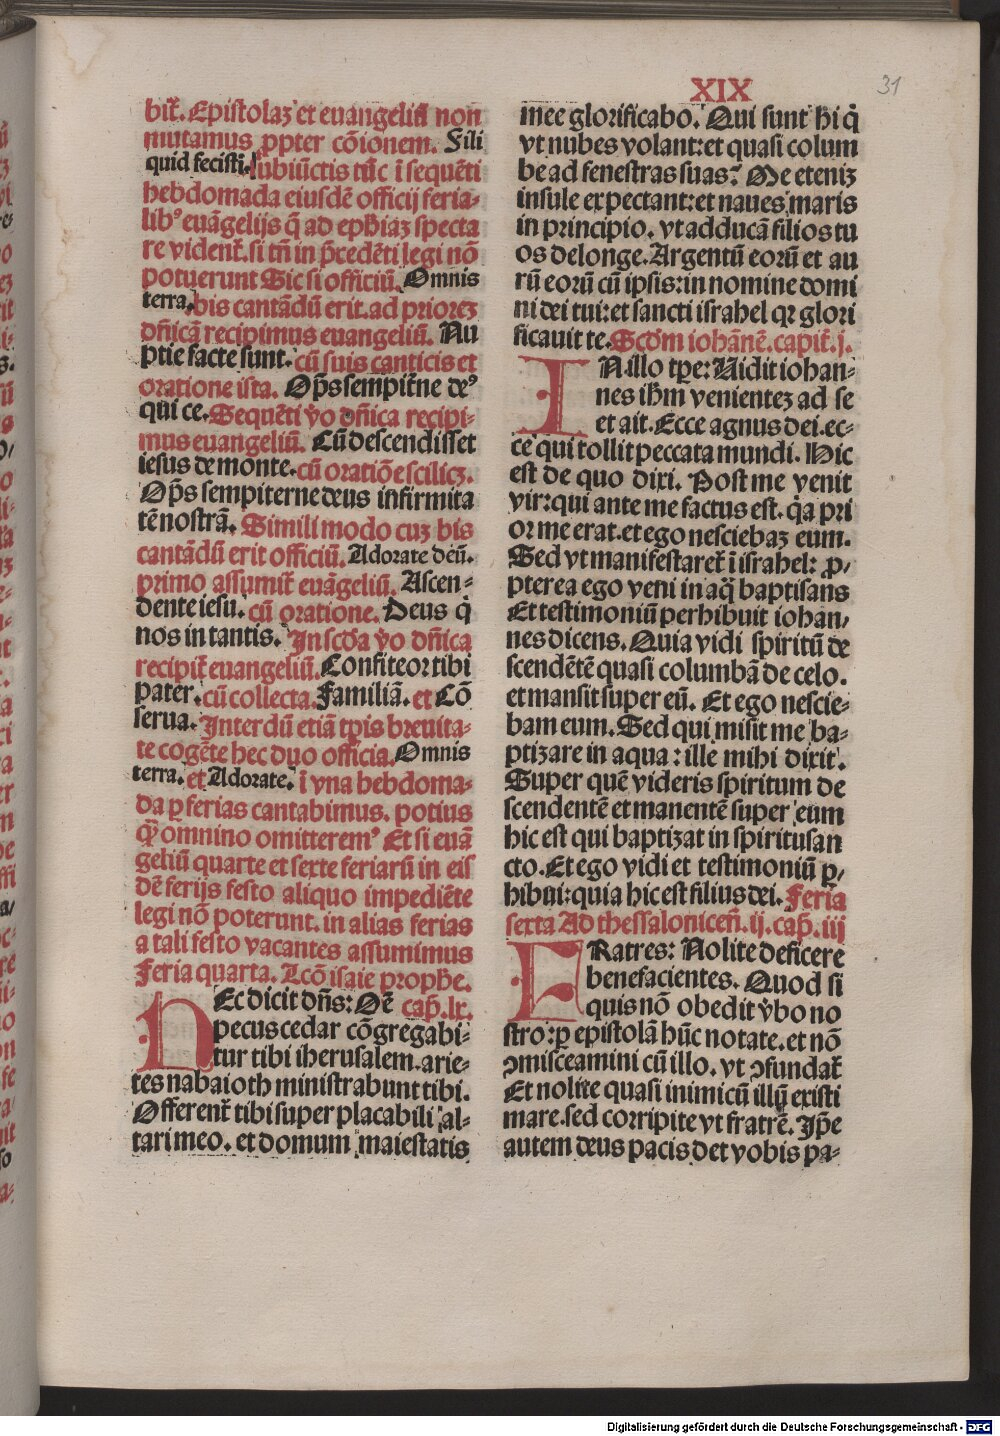 XIX
31
bit᷑. Epistolaꝫ et euangeliū non
mutamus ꝓpter cōionem. Fili
quid fecisti. Iūbiūctis tūc ī sequēti
hebdomada eiusdē officij feria-
libꝰ euāgelijs q̄ ad epħiaꝫ specta
re vident᷑. si tn̄ in p̄cedēti legi nō
potuerunt Sic si officiū. Omnis
terra. bis cantādū erit. ad priorez
dn̄icā recipimus euangeliū. Nu
ptie facte sunt. cū suis canticis et
oratione ista. Op̄s sempit̄ne deꝰ
qui ce. Sequēti v̄o dn̄ica recipi-
mus euangeliū. Cū descendisset
iesus de monte. cū oratiōe scilicꝫ.
Op̄s sempiterne deus infirmita
tē nostrā. Simili modo cuꝫ bis
cantādū erit officiū. Adorate deū.
primo assumit᷑ euāgeliū. Ascen-
dente iesu. cū oratione. Deus q̇
nos in tantis. In scd̄a v̄o dn̄ica
recipit᷑ euangeliū. Confiteor tibi
pater. cū collecta. Familiā. et Cō
serua. Interdū etiā tp̄is breuita-
te cogēte hec duo officia. Omnis
terra. et Adorate. ī vna hebdoma-
da ꝑ ferias cantabimus. potius
q̄ȝ omnino omitteremꝰ Et si euā
geliū quarte et sexte feriarū in eis
dē ferijs festo aliquo impediēte
legi nō poterunt. in alias ferias
a tali festo vacantes assumimus
Feria quarta. Lcō isaie prophe.
HEc dicit dn̄s: Oē cap̄. lx.
pecus cedar cōgregabi-
tur tibi iherusalem. arie-
tes nabaioth ministrabunt tibi.
Offerent᷑ tibi super placabili al-
tari meo. et domum maiestatis
mee glorificabo. Qui sunt hi q̇
vt nubes volant: et quasi colum
be ad fenestras suas? Me etenīꝫ
insule expectant: et naues maris
in principio. vt adducā filios tu
os de longe. Argentū eorū et au
rū eorū cū ipsis: in nomine domi
ni dei tui: et sancti israhel qꝛ glori
ficauit te. Scd̄m iohānē. capit᷑. j.
IN illo tp̄e: Vidit iohan-
nes ihm̄ venientez ad se
et ait. Ecce agnus dei. ec-
ce qui tollit peccata mundi. Hic
est de quo dixi. Post me venit
vir: qui ante me factus est. q̇a pri
or me erat. et ego nesciebaꝫ eum.
Sed vt manifestaret᷑ ī israhel: ꝓ-
pterea ego veni in aq̄ baptisans
Et testimoniū perhibuit iohan-
nes dicens. Quia vidi spiritū de
scendētē quasi columbā de celo.
et mansit super eū. Et ego nescie-
bam eum. Sed qui misit me ba-
ptizare in aqua: ille mihi dixit.
Super quē videris spiritum de
scendentē et manentē super eum
hic est qui baptizat in spiritusan
cto. Et ego vidi et testimoniū ꝑ-
hibui: quia hic est filius dei. Feria
sexta Ad thessalonicen̄. ij. cap̄. iij
FRatres: Nolite deficere
benefacientes. Quod si
quis nō obedit v̄bo no
stro: ꝑ epistolā hūc notate. et nō
ꝯmisceamini cū illo. vt ꝯfundat᷑
Et nolite quasi inimicū illū existi
mare. sed corripite vt fratrē. Ip̄e
autem deus pacis det vobis pa-
Digitalisierung gefördert durch die Deutsche Forschungsgemeinschaft - DFG